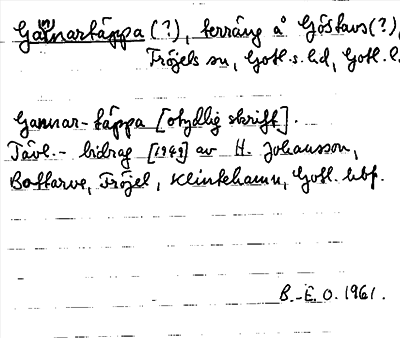 Gannartäppa (?), terräng å Göstavs (?),
Fröjels sn, Gotl. s. hd, Gotl. l.
Gannar-täppa [otydlig skrift].
Tävl.-bidrag [1949] av H. Johansson,
Bottarve, Fröjel, Klintehamn, Gotl. hbf.
B.-E. O. 1961.